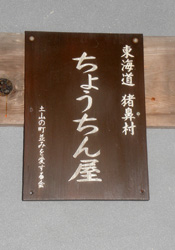 東海道 猪鼻村
ちょうちん屋
土山の町並みを愛する会